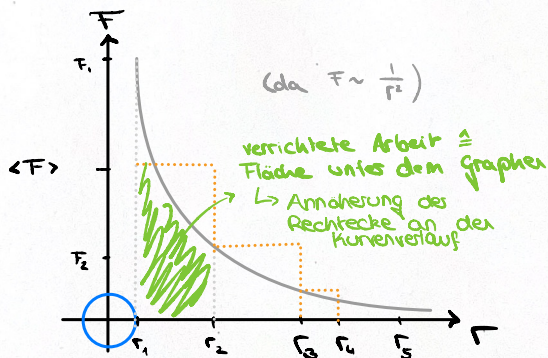 F
F₁
(da F ~ 1/r²)
verrichtete Arbeit ≙
Fläche unter dem Graphen
<F>
↳ Annäherung des
Rechtecke an den
Kurvenverlauf
F₂
r₁ r₂ r₃ r₄ r₅ r